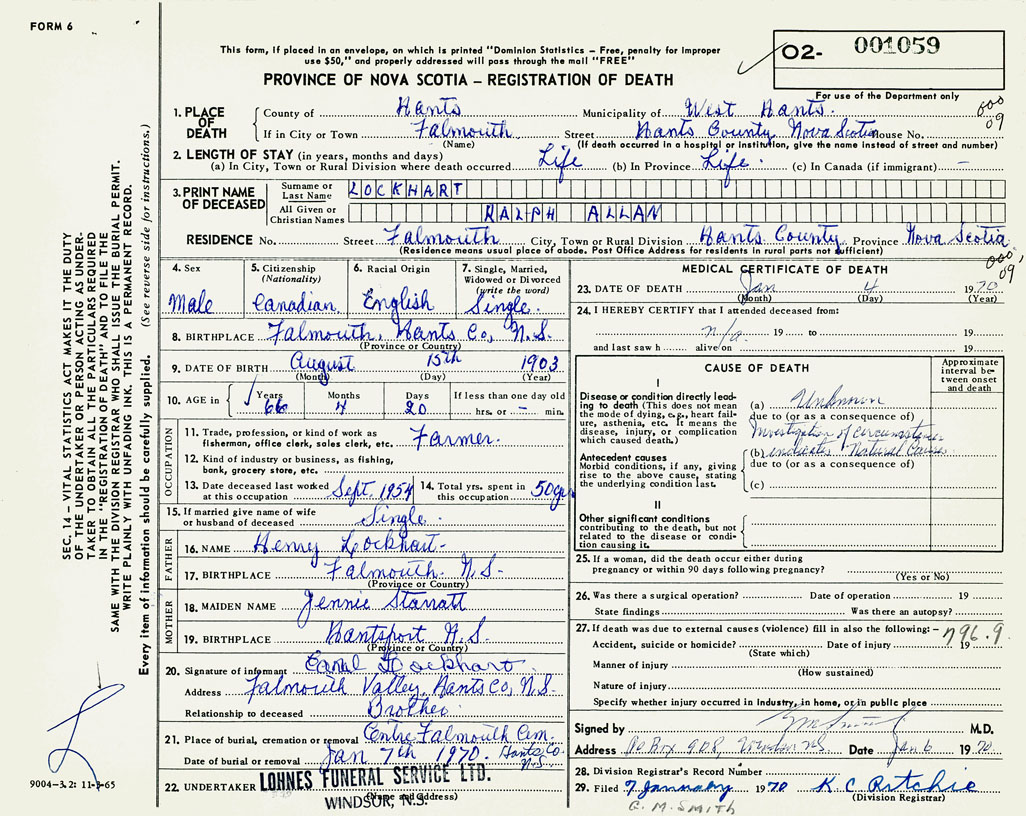 FORM 6
This form, if placed in an envelope, on which is printed "Dominion Statistics – Free, penalty for improper
use $50," and properly addressed will pass through the mail "FREE"
PROVINCE OF NOVA SCOTIA – REGISTRATION OF DEATH
O2- 001059
For use of the Department only
000
09
1. PLACE OF DEATH
County of Hants Municipality of West Hants.
If in City or Town Falmouth Street Hants County Nova Scotia House No.
(Name) (If death occurred in a hospital or institution, give the name instead of street and number)
2. LENGTH OF STAY (in years, months and days)
(a) In City, Town or Rural Division where death occurred Life (b) In Province Life. (c) In Canada (if immigrant) –
3. PRINT NAME OF DECEASED
Surname or Last Name LOCKHART
All Given or Christian Names RALPH ALLAN
RESIDENCE No. Street Falmouth City, Town or Rural Division Hants County Province Nova Scotia
(Residence means usual place of abode. Post Office Address for residents in rural parts not sufficient)
000,
09
4. Sex Male
5. Citizenship (Nationality) Canadian
6. Racial Origin English
7. Single, Married, Widowed or Divorced (write the word) Single.
8. BIRTHPLACE Falmouth, Hants Co, N.S.
(Province or Country)
9. DATE OF BIRTH August 15th 1903
(Month) (Day) (Year)
10. AGE in Years 66 Months 4 Days 20 If less than one day old hrs. or – min.
OCCUPATION
11. Trade, profession, or kind of work as
fisherman, office clerk, sales clerk, etc. Farmer.
12. Kind of industry or business, as fishing,
bank, grocery store, etc.
13. Date deceased last worked at this occupation Sept. 1954
14. Total yrs. spent in this occupation 50yr
15. If married give name of wife
or husband of deceased Single.
FATHER
16. NAME Henry Lockhart
17. BIRTHPLACE Falmouth N.S.
(Province or Country)
MOTHER
18. MAIDEN NAME Jennie Starratt
19. BIRTHPLACE Hantsport N.S
(Province or Country)
20. Signature of informant Lockhart
Address Falmouth Valley, Hants Co, N.S.
Relationship to deceased Brother
21. Place of burial, cremation or removal Centre Falmouth Cem.
Date of burial or removal Jan 7th 1970. Hants Co.
N.S.
22. UNDERTAKER LOHNES FUNERAL SERVICE LTD.
(Name and Address)
WINDSOR, N.S.
MEDICAL CERTIFICATE OF DEATH
23. DATE OF DEATH Jan 4 1970
(Month) (Day) (Year)
24. I HEREBY CERTIFY that I attended deceased from:
n/a. 19 to 19
and last saw h alive on 19
CAUSE OF DEATH
Approximate interval between onset and death
I
Disease or condition directly leading
to death (This does not mean
the mode of dying, e.g., heart failure,
asthenia, etc. It means the
disease, injury, or complication
which caused death.)
(a) Unknown
due to (or as a consequence of)
Investigation of circumstances
(b) indicates Natural Causes
due to (or as a consequence of)
(c)
Antecedent causes
Morbid conditions, if any, giving
rise to the above cause, stating
the underlying condition last.
II
Other significant conditions
contributing to the death, but not
related to the disease or condition
causing it.
25. If a woman, did the death occur either during
pregnancy or within 90 days following pregnancy?
(Yes or No)
26. Was there a surgical operation? Date of operation 19
State findings Was there an autopsy?
27. If death was due to external causes (violence) fill in also the following: – 796.9
Accident, suicide or homicide? Date of injury 19
(State which)
Manner of injury
(How sustained)
Nature of injury
Specify whether injury occurred in Industry, in home, or in public place
Signed by M.D.
Address PO Box 908 Windsor NS Date Jan 6 1970
28. Division Registrar's Record Number
29. Filed 7 January 1970 K C Ritchie
(Division Registrar)
G. M. SMITH
SEC. 14 – VITAL STATISTICS ACT MAKES IT THE DUTY
OF THE UNDERTAKER OR PERSON ACTING AS UNDERTAKER
TO OBTAIN ALL THE PARTICULARS REQUIRED
IN THE "REGISTRATION OF DEATH" AND TO FILE THE
SAME WITH THE DIVISION REGISTRAR WHO SHALL ISSUE THE BURIAL PERMIT.
WRITE PLAINLY WITH UNFADING INK. THIS IS A PERMANENT RECORD.
Every item of information should be carefully supplied. (See reverse side for instructions.)
9004-3.2: 11-3-65